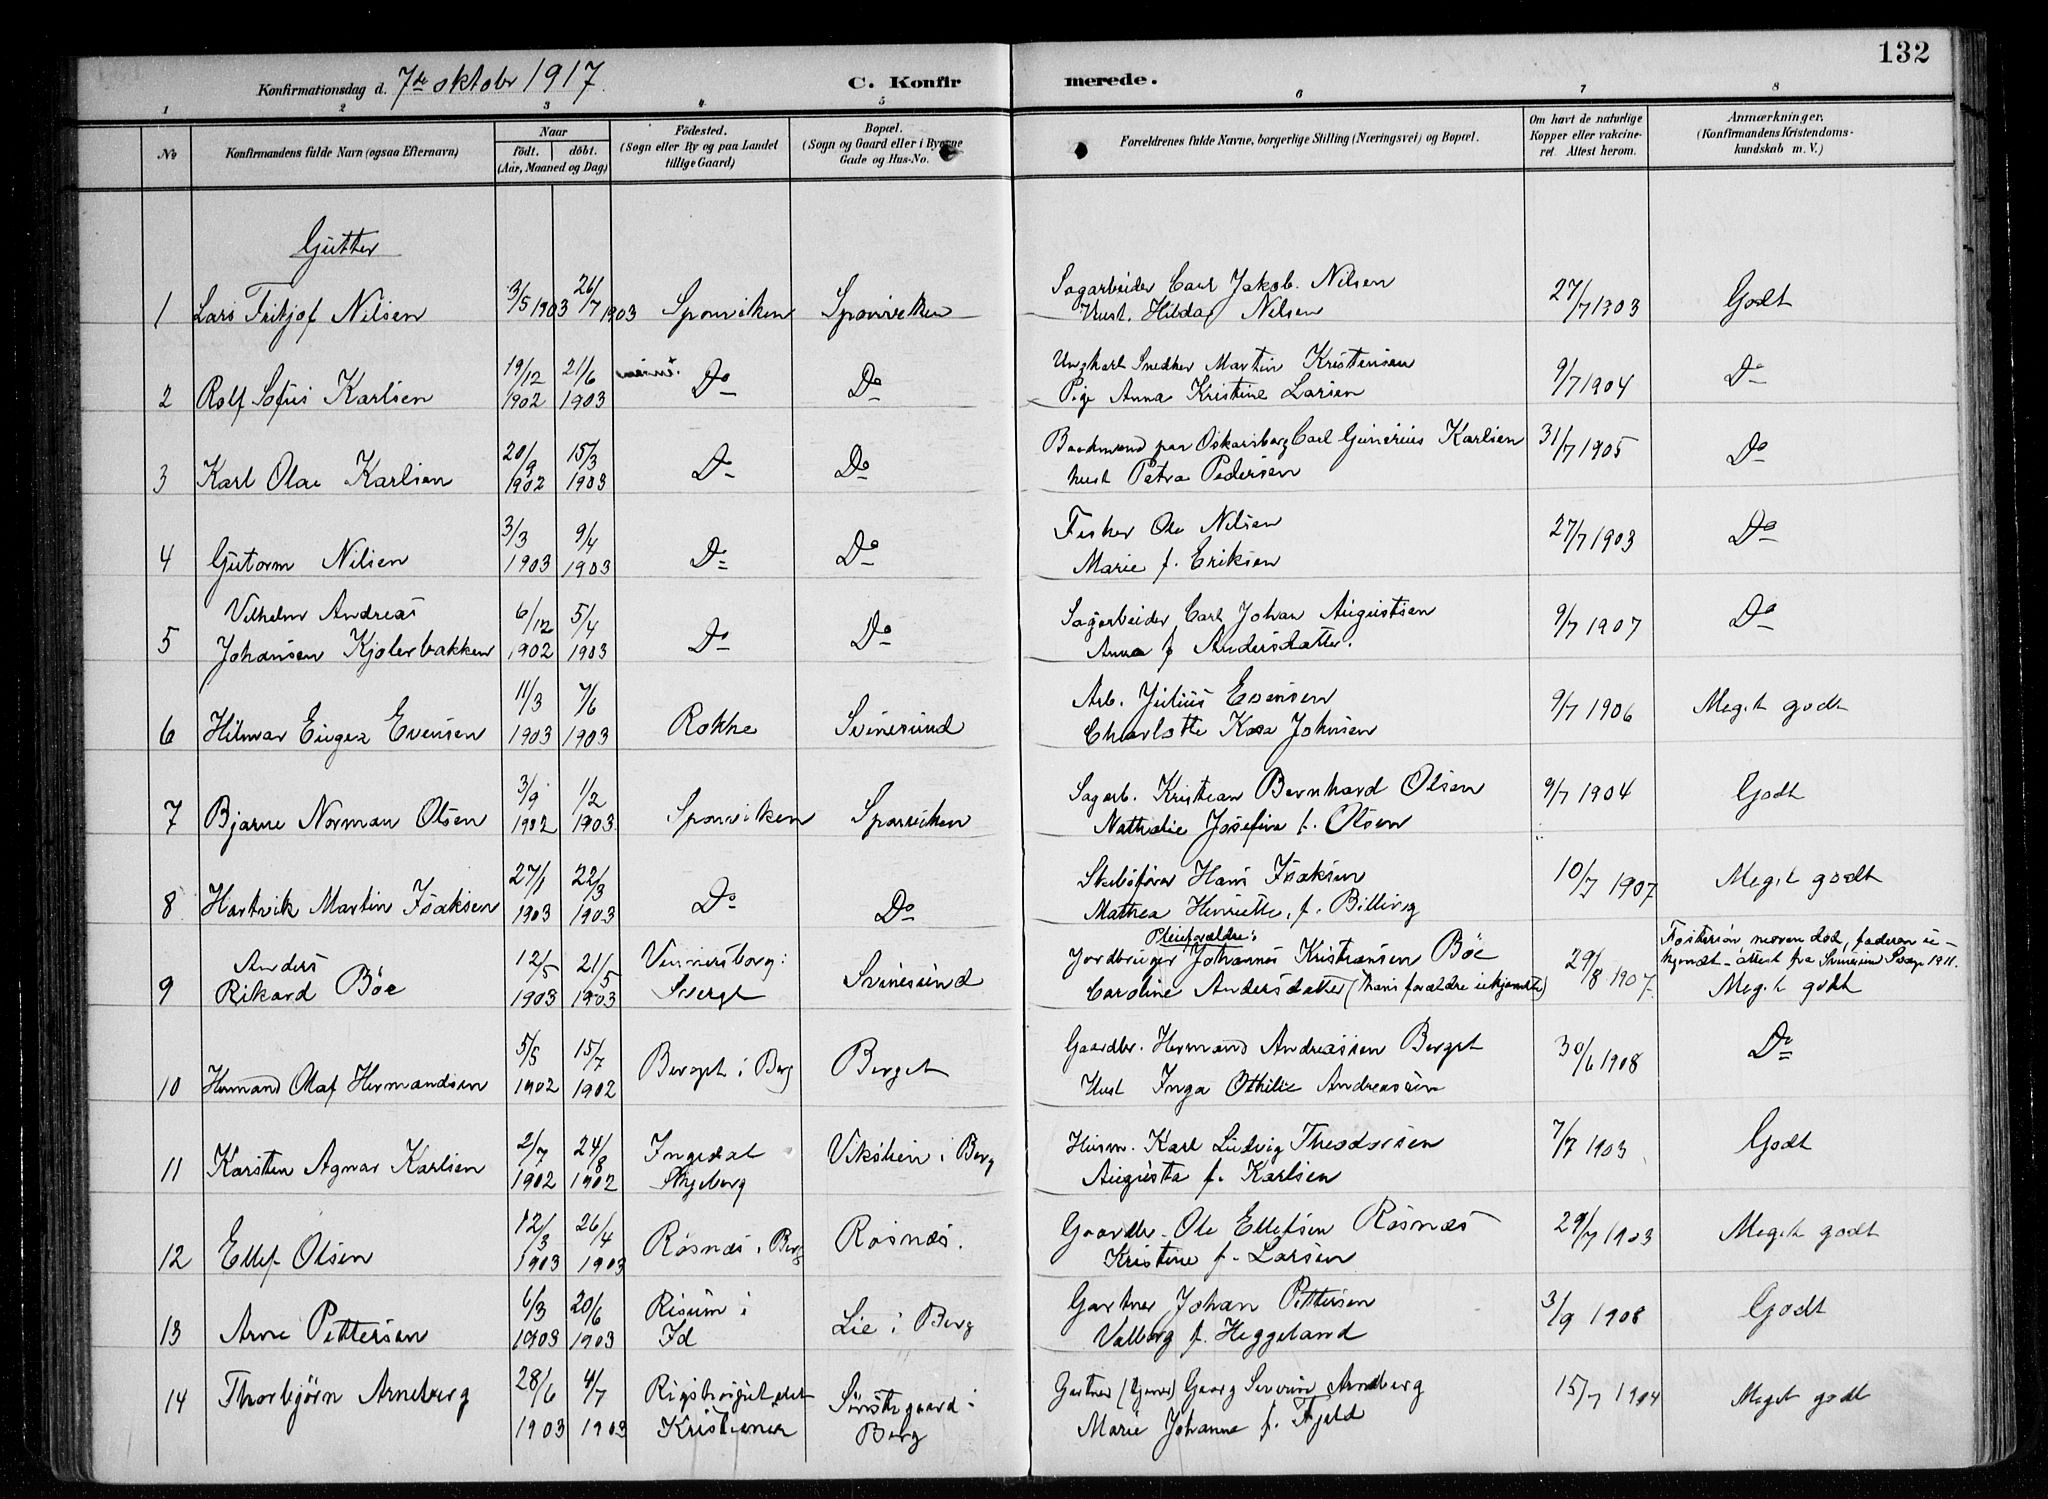 132
Konfirmationsdag d. 7de oktobr 1917. C. Konfirmerede.
1 2 3 4 5 6 7 8
No
Konfirmandens fulde Navn (ogsaa Efternavn)
Naar
födt. döbt.
(Aar, Maaned og Dag)
Födested.
(Sogn eller By og paa Landet
tillige Gaard)
Bopæl.
(Sogn og Gaard eller i Byerne
Gade og Hus-No.
Forældrenes fulde Navne, borgerlige Stilling (Næringsvei) og Bopæl.
Om havt de naturlige
Kopper eller vakcine-
ret. Attest herom.
Anmærkninger.
(Konfirmandens Kristendoms-
kundskab m. V.)
Gutter
1 Lars Fritjof Nilsen 3/5 1903 26/7 1903 Sponviken Sponviken Sagarbeider Carl Jakob. Nilsen
Hust. Hilda Nilsen 27/7 1903 Godt
2 Rolf Sofus Karlsen 19/12 1902 21/6 1903 Do Do Ungkarl Snedker Martin Kristensen
Pige Anna Kristine Larsen 9/7 1904 Do
3 Karl Olav Karlsen 20/9 1902 15/3 1903 Do Do Baadsmand paa Oskarsborg Carl Gunerius Karlsen
hust Petra Pedersen 31/7 1905 Do
4 Gutorm Nilsen 3/3 1903 9/4 1903 Do Do Fisker Ole Nilsen
Marie f. Eriksen 27/7 1903 Do
5 Vilhelm Andreas
Johansen Kjølerbakken 6/12 1902 5/4 1903 Do Do Sagarbeider Carl Johan Augustsen
Anna f Andersdatter. 9/7 1907 Do
6 Hilmar Eugen Evensen 11/3 1903 7/6 1903 Rokke Svinesund Arb. Julius Evensen
Charlotte Kaja Johnsen 9/7 1906 Meget godt
7 Bjarne Norman Olsen 3/9 1902 1/2 1903 Sponviken Sponviken Sagarb. Kristian Bernhard Olsen
Nathalie Josefine f. Olsen 9/7 1904 Godt
8 Hartvik Martin Isaksen 27/1 1903 22/3 1903 Do Do Skibsfører Hans Isaksen
Mathea Henriette, f. Billing 10/7 1907 Meget godt
9 Anders
Rikard Böe 12/5 1903 21/5 1903 Vennersborg:
Sverge Svinesund Pleieforældre:
Jordbruger Johannes Kristiansen Böe
Caroline Andersdatter (hans forældre ukjendte) 29/8 1907. Fostersön, moren död, faderen u-
kjendt - attest fra Svinesund 1911.
Meget godt
10 Hermand Olaf Hermandsen 5/5 1902 15/7 1902 Berget i Berg Berget Gaardbr. Hermand Andreassen Berget
Hust Inga Othilie Andreassen 30/6 1908 Do
11 Karsten Agnar Karlsen 2/7 1902 24/8 1902 Ingedal
Skjeberg Viksleten i Berg Husm. Karl Ludvig Theodorsen
Augusta f. Karlsen 7/7 1903 Godt
12 Ellef Olsen 12/3 1903 26/4 1903 Rösnæs i Berg Rösnæs. Gaardbr. Ole Ellefsen Rösnæs
Kristine f. Larsen 29/7 1903 Meget godt
13 Arne Pettersen 6/3 1903 20/6 1903 Risum i
Id Lie i Berg Gartner Johan Pettersen
Valborg f. Heggeland 3/9 1908 Godt
14 Thorbjörn Arneberg 28/6 1903 4/7 1903 Rigshospitalet
Kristiania Sörstegaard i
Berg Gartner Georg Severin Arneberg
Marie Johanne f. Fjeld 15/7 1904 Meget godt